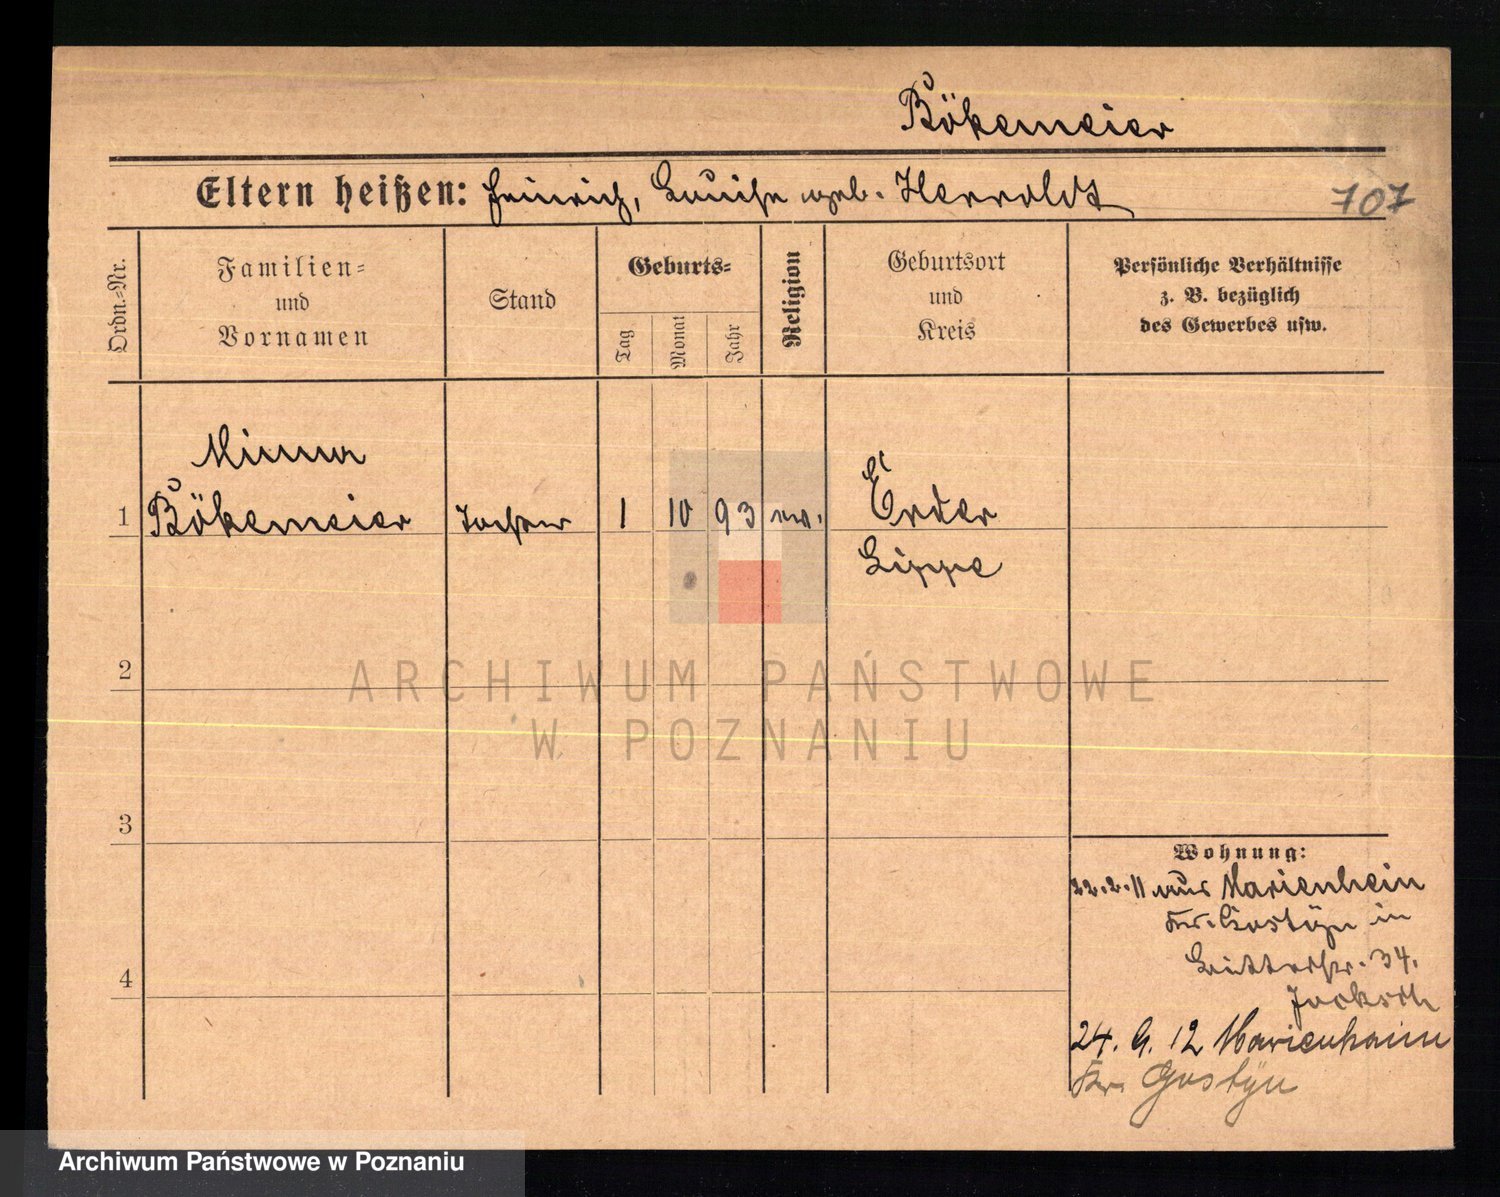 Bökemeier
Eltern heißen: Heinrich, Louise geb. Herroldt
707
Ordn.=Nr.
Familien=
und
Vornamen
Stand
Geburts=
Tag
Monat
Jahr
Religion
Geburtsort
und
Kreis
Persönliche Verhältnisse
z. B. bezüglich
des Gewerbes usw.
Minna
1 Bökemeier Tochter 1 10 93 ev. Erder
Lippe
2
ARCHIWUM PAŃSTWOWE
W POZNANIU
3
Wohnung:
22.2.11 aus Marienhein
Kr. Gostÿn in
34.
4
24. 9. 12 Marienhain
Kr. Gostÿn
Archiwum Państwowe w Poznaniu